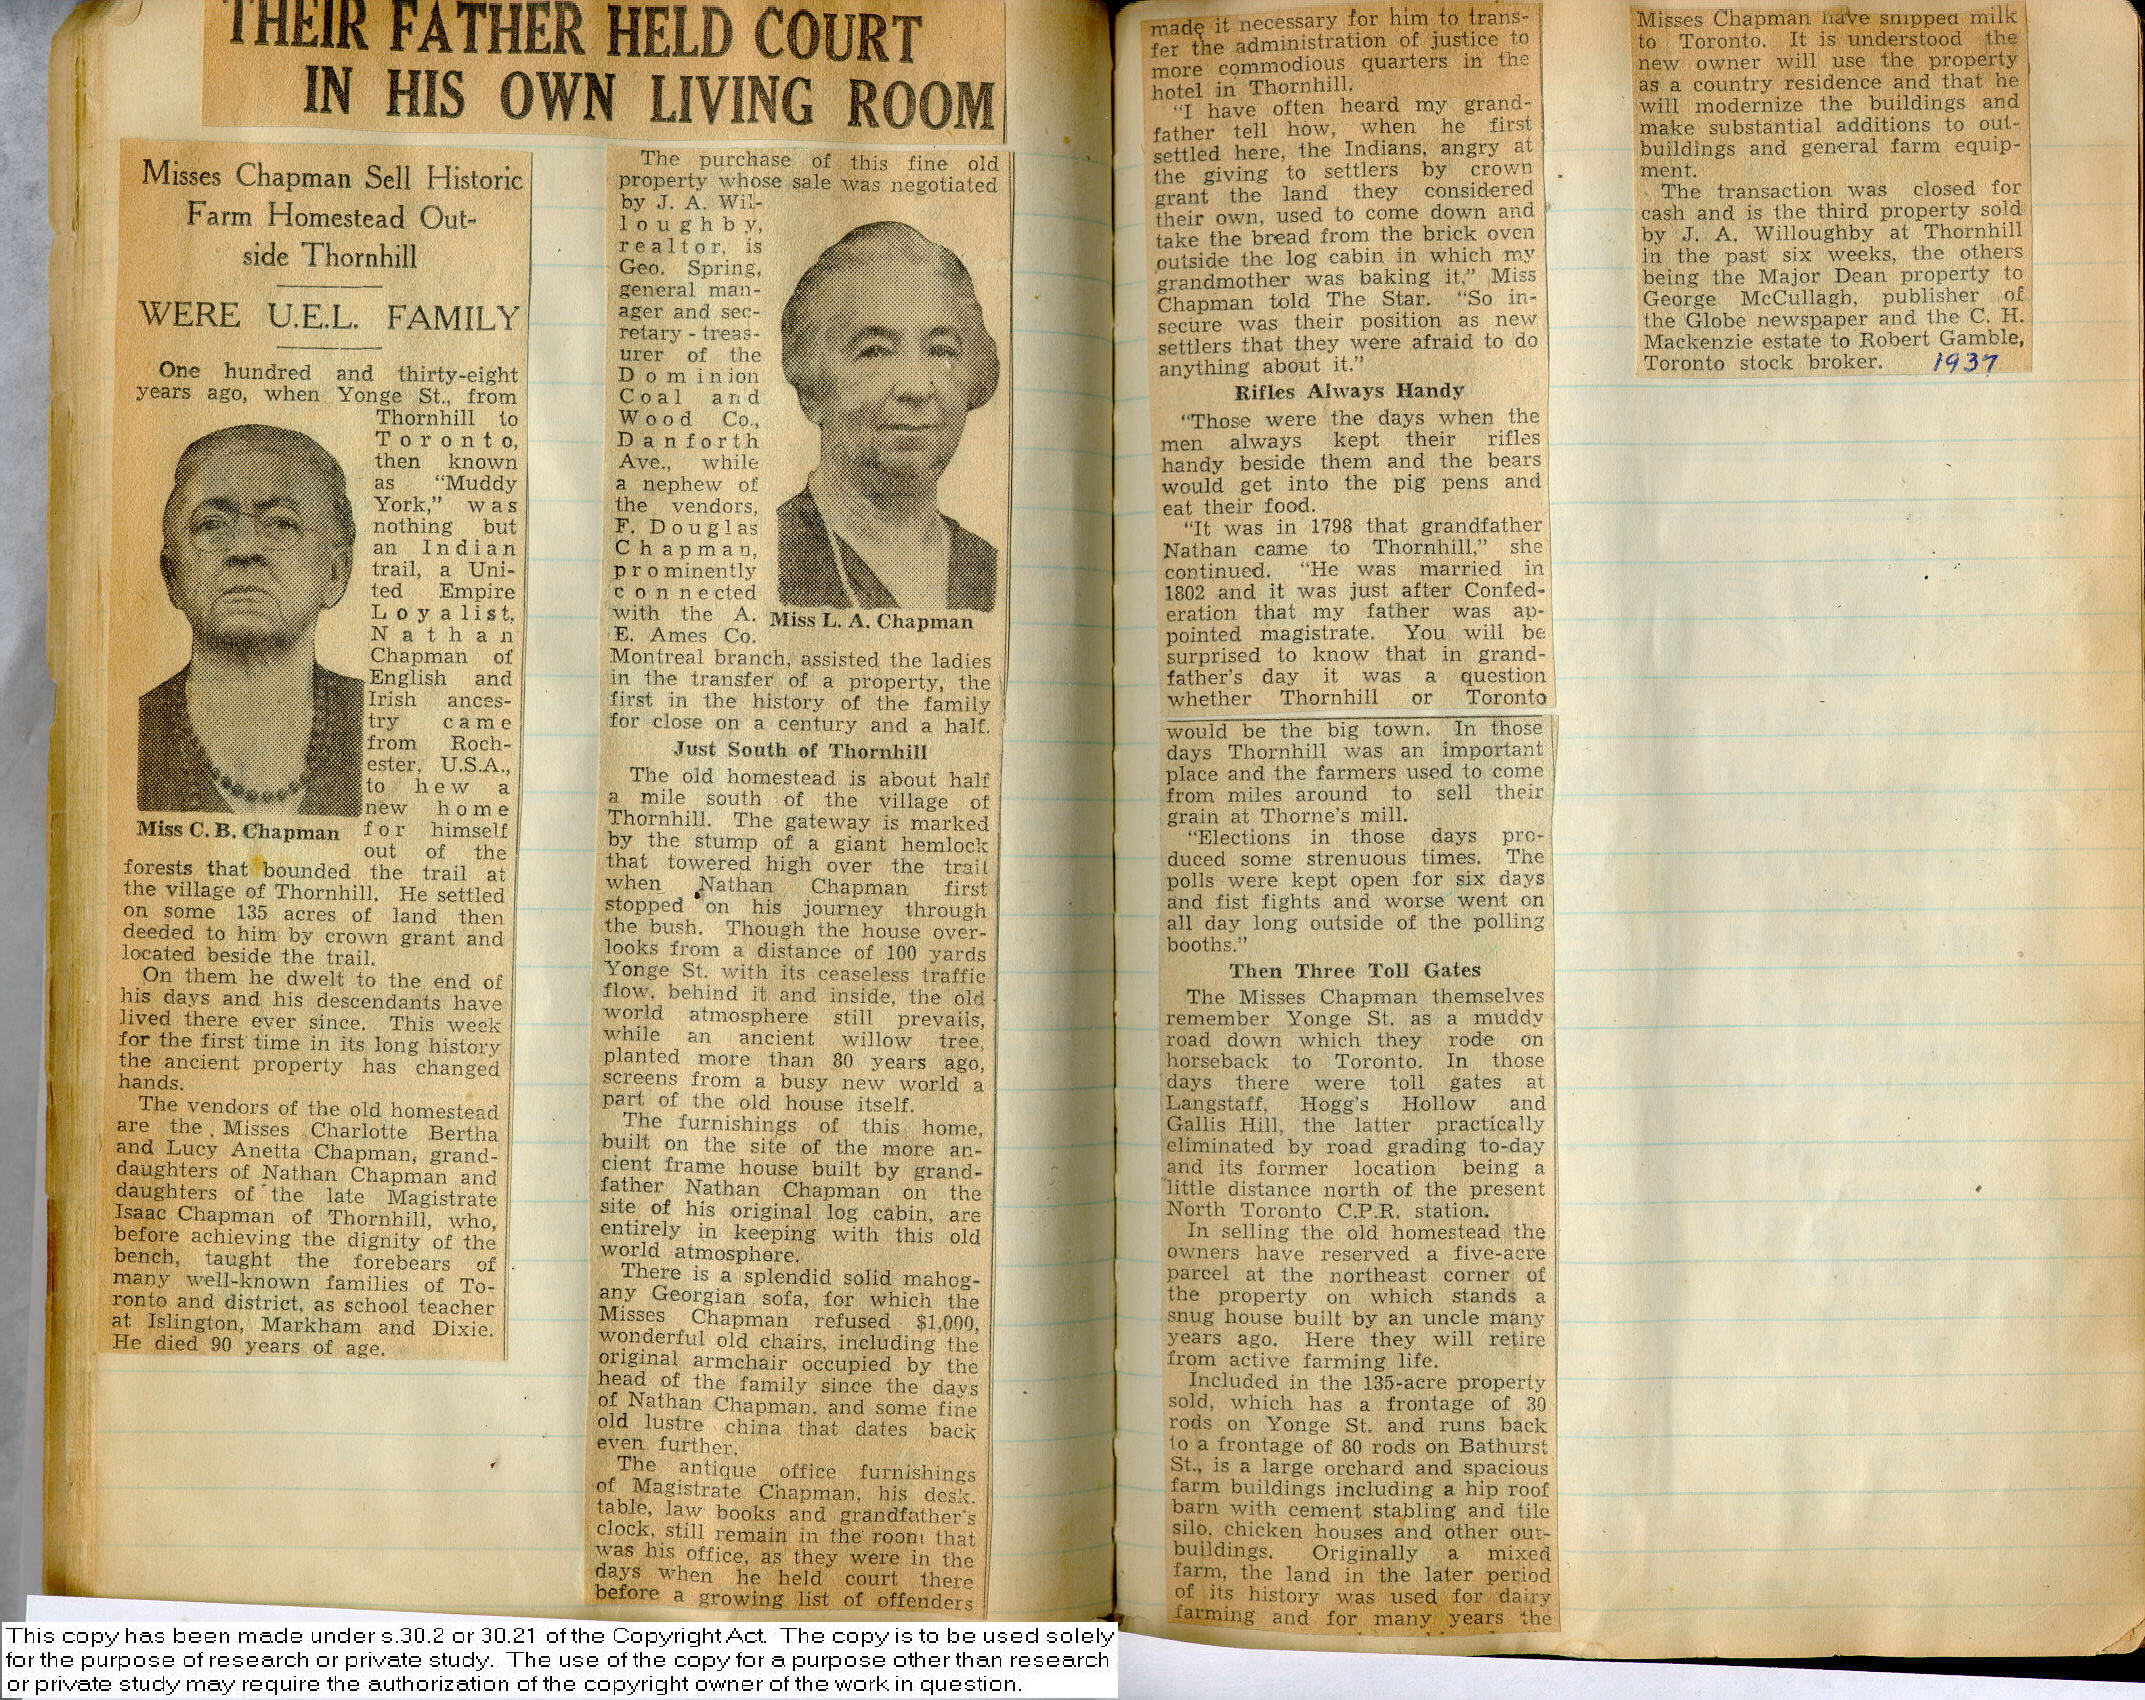 THEIR FATHER HELD COURT
IN HIS OWN LIVING ROOM
Misses Chapman Sell Historic
Farm Homestead Out-
side Thornhill
WERE U.E.L. FAMILY
One hundred and thirty-eight
years ago, when Yonge St., from
Thornhill to
Toronto,
then known
as "Muddy
York," was
nothing but
an Indian
trail, a Uni-
ted Empire
Loyalist,
Nathan
Chapman of
English and
Irish ances-
try came
from Roch-
ester, U.S.A.,
to hew a
new home
for himself
out of the
Miss C. B. Chapman
forests that bounded the trail at
the village of Thornhill. He settled
on some 135 acres of land then
deeded to him by crown grant and
located beside the trail.
On them he dwelt to the end of
his days and his descendants have
lived there ever since. This week
for the first time in its long history
the ancient property has changed
hands.
The vendors of the old homestead
are the Misses Charlotte Bertha
and Lucy Anetta Chapman, grand-
daughters of Nathan Chapman and
daughters of the late Magistrate
Isaac Chapman of Thornhill, who,
before achieving the dignity of the
bench, taught the forebears of
many well-known families of To-
ronto and district, as school teacher
at Islington, Markham and Dixie.
He died 90 years of age.
The purchase of this fine old
property whose sale was negotiated
by J. A. Wil-
loughby,
realtor, is
Geo. Spring,
general man-
ager and sec-
retary-treas-
urer of the
Dominion
Coal and
Wood Co.,
Danforth
Ave., while
a nephew of
the vendors,
F. Douglas
Chapman,
prominently
connected
with the A.
E. Ames Co.
Miss L. A. Chapman
Montreal branch, assisted the ladies
in the transfer of a property, the
first in the history of the family
for close on a century and a half.
Just South of Thornhill
The old homestead is about half
a mile south of the village of
Thornhill. The gateway is marked
by the stump of a giant hemlock
that towered high over the trail
when Nathan Chapman first
stopped on his journey through
the bush. Though the house over-
looks from a distance of 100 yards
Yonge St. with its ceaseless traffic
flow, behind it and inside, the old
world atmosphere still prevails,
while an ancient willow tree,
planted more than 80 years ago,
screens from a busy new world a
part of the old house itself.
The furnishings of this home,
built on the site of the more an-
cient frame house built by grand-
father Nathan Chapman on the
site of his original log cabin, are
entirely in keeping with this old
world atmosphere.
There is a splendid solid mahog-
any Georgian sofa, for which the
Misses Chapman refused $1,000,
wonderful old chairs, including the
original armchair occupied by the
head of the family since the days
of Nathan Chapman, and some fine
old lustre china that dates back
even further.
The antique office furnishings
of Magistrate Chapman, his desk,
table, law books and grandfather's
clock, still remain in the room that
was his office, as they were in the
days when he held court there
before a growing list of offenders
made it necessary for him to trans-
fer the administration of justice to
more commodious quarters in the
hotel in Thornhill.
"I have often heard my grand-
father tell how, when he first
settled here, the Indians, angry at
the giving to settlers by crown
grant the land they considered
their own, used to come down and
take the bread from the brick oven
outside the log cabin in which my
grandmother was baking it," Miss
Chapman told The Star. "So in-
secure was their position as new
settlers that they were afraid to do
anything about it."
Rifles Always Handy
"Those were the days when the
men always kept their rifles
handy beside them and the bears
would get into the pig pens and
eat their food.
"It was in 1798 that grandfather
Nathan came to Thornhill," she
continued. "He was married in
1802 and it was just after Confed-
eration that my father was ap-
pointed magistrate. You will be
surprised to know that in grand-
father's day it was a question
whether Thornhill or Toronto
would be the big town. In those
days Thornhill was an important
place and the farmers used to come
from miles around to sell their
grain at Thorne's mill.
"Elections in those days pro-
duced some strenuous times. The
polls were kept open for six days
and fist fights and worse went on
all day long outside of the polling
booths."
Then Three Toll Gates
The Misses Chapman themselves
remember Yonge St. as a muddy
road down which they rode on
horseback to Toronto. In those
days there were toll gates at
Langstaff, Hogg's Hollow and
Gallis Hill, the latter practically
eliminated by road grading to-day
and its former location being a
little distance north of the present
North Toronto C.P.R. station.
In selling the old homestead the
owners have reserved a five-acre
parcel at the northeast corner of
the property on which stands a
snug house built by an uncle many
years ago. Here they will retire
from active farming life.
Included in the 135-acre property
sold, which has a frontage of 30
rods on Yonge St. and runs back
to a frontage of 80 rods on Bathurst
St., is a large orchard and spacious
farm buildings including a hip roof
barn with cement stabling and tile
silo, chicken houses and other out-
buildings. Originally a mixed
farm, the land in the later period
of its history was used for dairy
farming and for many years the
Misses Chapman have shipped milk
to Toronto. It is understood the
new owner will use the property
as a country residence and that he
will modernize the buildings and
make substantial additions to out-
buildings and general farm equip-
ment.
The transaction was closed for
cash and is the third property sold
by J. A. Willoughby at Thornhill
in the past six weeks, the others
being the Major Dean property to
George McCullagh, publisher of
the Globe newspaper and the C. H.
Mackenzie estate to Robert Gamble,
Toronto stock broker. 1937
This copy has been made under s.30.2 or 30.21 of the Copyright Act. The copy is to be used solely
for the purpose of research or private study. The use of the copy for a purpose other than research
or private study may require the authorization of the copyright owner of the work in question.